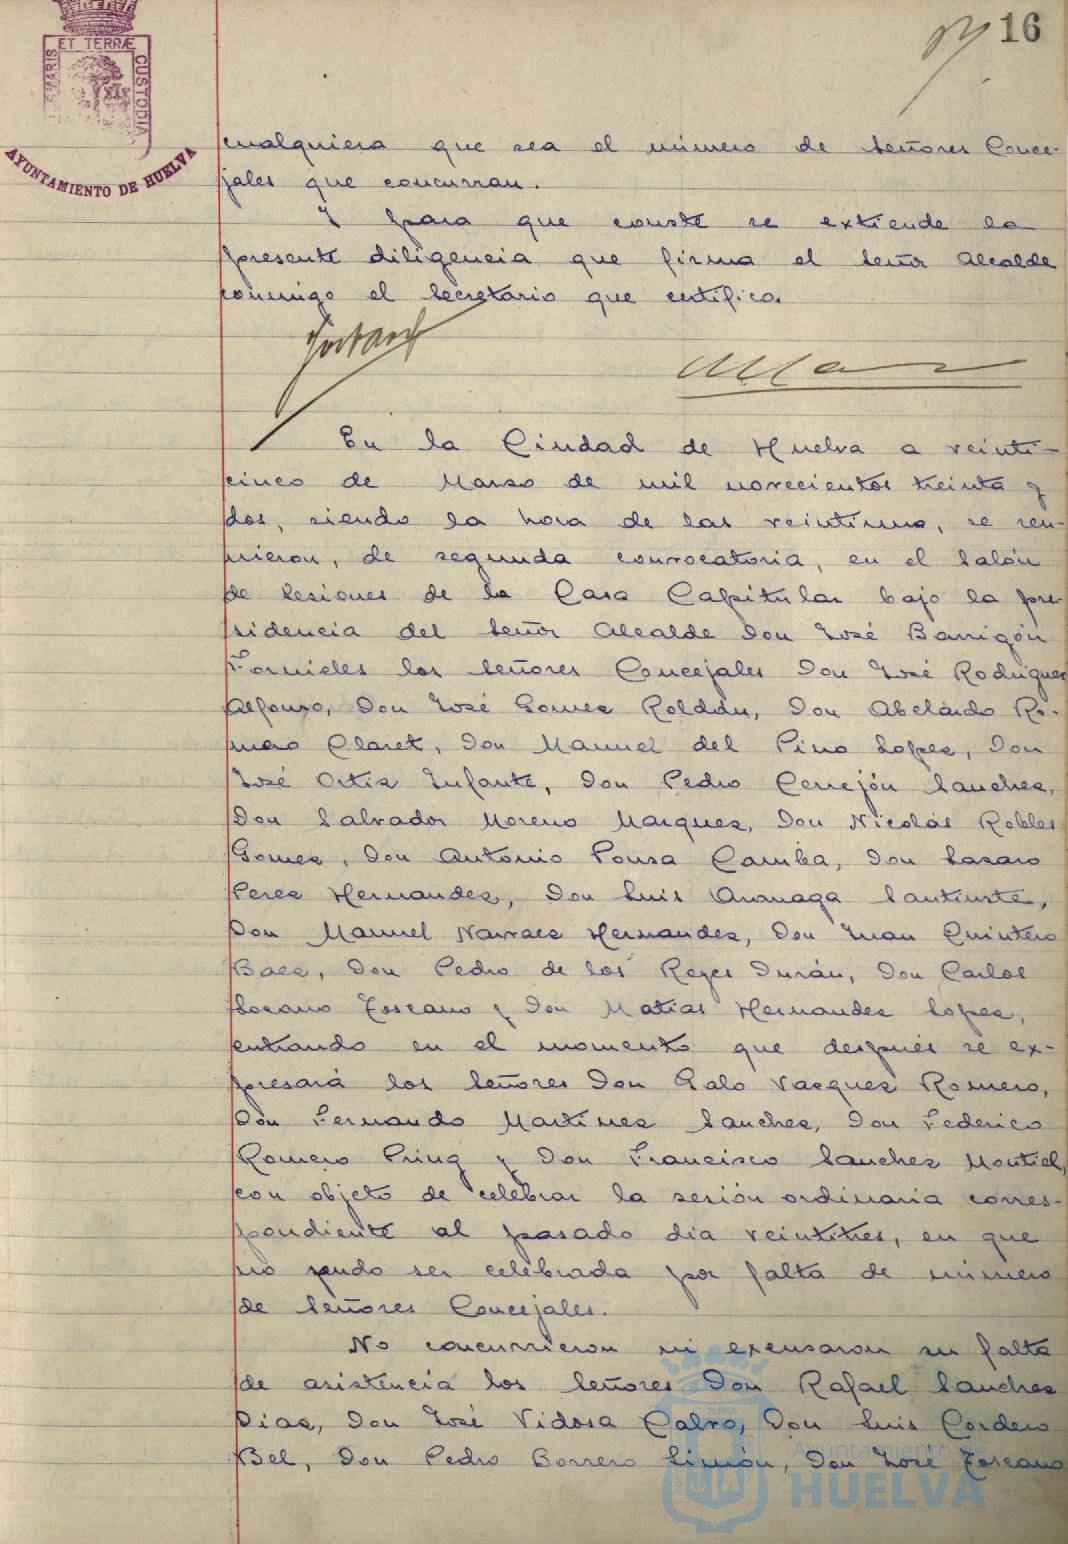 16
ET TERRÆ
S MARIS
CUSTODIA
AYUNTAMIENTO DE HUELVA
cualquiera que sea el número de Señores Conce-
jales que concurran.
Y para que conste se extiende la
presente diligencia que firma el Señor Alcalde
conmigo el Secretario que certifica.
En la Ciudad de Huelva a veinti-
cinco de Marzo de mil novecientos treinta y
dos, siendo la hora de las veintiuna, se reu-
nieron, de segunda convocatoria, en el Salón
de Sesiones de la Casa Capitular bajo la pre-
sidencia del Señor Alcalde Don José Barrigón
Fornieles los Señores Concejales Don José Rodriguez
Alfonzo, Don José Gomez Roldán, Don Abelardo Ro-
mero Claret, Don Manuel del Pino Lopez, Don
José Ortiz Infante, Don Pedro Cerrejón Sanchez,
Don Salvador Moreno Marquez, Don Nicolás Robles
Gomez, Don Antonio Pousa Camba, Don Lazaro
Perez Hernandez, Don Luis Ananaga Santiuste,
Don Manuel Narvaez Hernandez, Don Juan Quintero
Baez, Don Pedro de los Reyes Durán, Don Carlos
Lozano Toscano y Don Matias Hernandez Lopez,
entrando en el momento que después se ex-
presará los Señores Don Galo Vazquez Romero,
Don Fernando Martinez Sanchez, Don Federico
Romero Pring y Don Francisco Sanchez Montiel,
con objeto de celebrar la sesión ordinaria corres-
pondiente al pasado dia veintitres, en que
no pudo ser celebrada por falta de número
de Señores Concejales.
No concurrieron ni excusaron su falta
de asistencia los Señores Don Rafael Sanchez
Diaz, Don José Vidosa Calvo, Don Luis Cordero
Bel, Don Pedro Borrero Limón, Don José Toscano
Ayuntamiento de
HUELVA